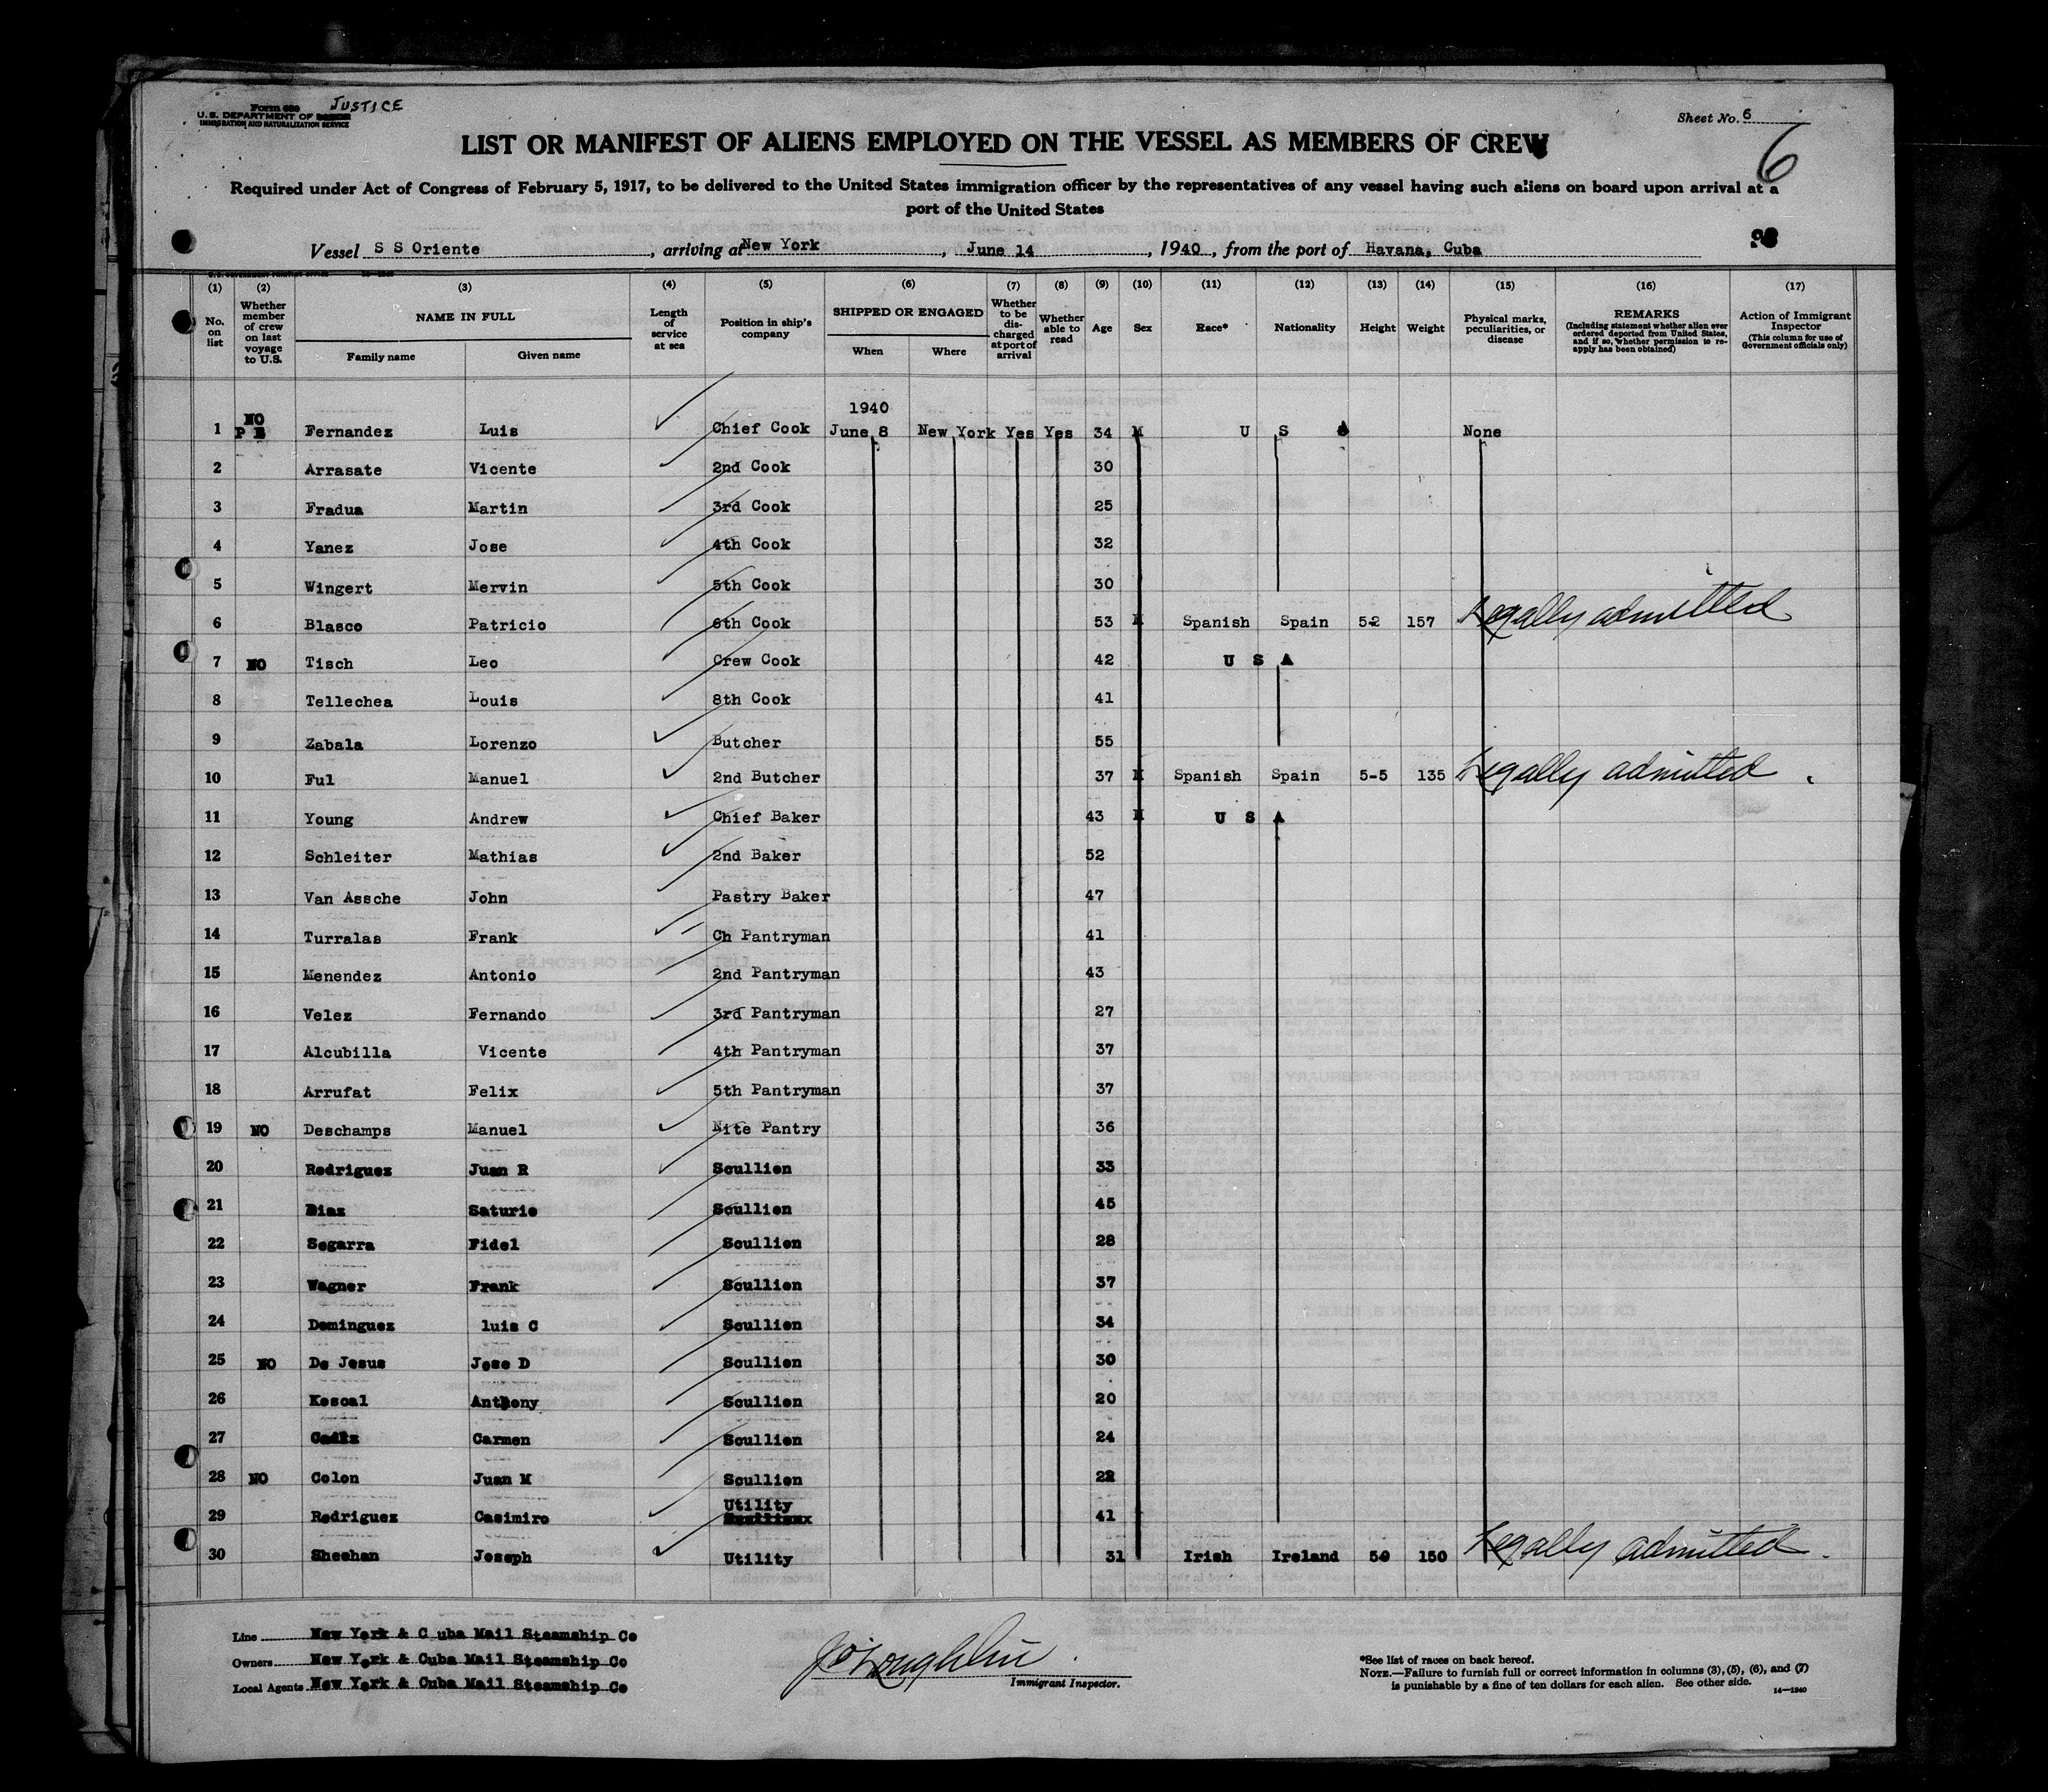 Form 680
U. S. DEPARTMENT OF LABOR JUSTICE
IMMIGRATION AND NATURALIZATION SERVICE
Sheet No. 6
6
LIST OR MANIFEST OF ALIENS EMPLOYED ON THE VESSEL AS MEMBERS OF CREW
Required under Act of Congress of February 5, 1917, to be delivered to the United States immigration officer by the representatives of any vessel having such aliens on board upon arrival at a
port of the United States
Vessel S S Oriente, arriving at New York, June 14, 1940, from the port of Havana, Cuba
(1) (2) (3) (4) (5) (6) (7) (8) (9) (10) (11) (12) (13) (14) (15) (16) (17)
No. on list
Whether member of crew on last voyage to U.S.
NAME IN FULL
Family name
Given name
Length of service at sea
Position in ship's company
SHIPPED OR ENGAGED
When
Where
Whether to be discharged at port of arrival
Whether able to read
Age
Sex
Race*
Nationality
Height
Weight
Physical marks, peculiarities, or disease
REMARKS
(Including statement whether alien ever ordered deported from United States, and if so, whether permission to re-apply has been obtained)
Action of Immigrant Inspector
(This column for use of Government officials only)
1940
1 NO P E Fernandez Luis Chief Cook June 8 New York Yes Yes 34 M U S A None
2 Arrasate Vicente 2nd Cook 30
3 Fradua Martin 3rd Cook 25
4 Yanez Jose 4th Cook 32
5 Wingert Mervin 5th Cook 30
6 Blasco Patricio 6th Cook 53 M Spanish Spain 5-2 157 Legally admitted
7 NO Tisch Leo Crew Cook 42 U S A
8 Tellechea Louis 8th Cook 41
9 Zabala Lorenzo Butcher 55
10 Ful Manuel 2nd Butcher 37 M Spanish Spain 5-5 135 Legally admitted
11 Young Andrew Chief Baker 43 M U S A
12 Schleiter Mathias 2nd Baker 52
13 Van Assche John Pastry Baker 47
14 Turralas Frank Ch Pantryman 41
15 Menendez Antonio 2nd Pantryman 43
16 Velez Fernando 3rd Pantryman 27
17 Alcubilla Vicente 4th Pantryman 37
18 Arrufat Felix 5th Pantryman 37
19 NO Deschamps Manuel Nite Pantry 36
20 Rodriguez Juan R Scullion 33
21 Diaz Saturio Scullion 45
22 Segarra Fidel Scullion 28
23 Wagner Frank Scullion 37
24 Dominguez luis C Scullion 34
25 NO De Jesus Jose D Scullion 30
26 Koscal Anthony Scullion 20
27 Cadiz Carmen Scullion 24
28 NO Colon Juan M Scullion 22
29 Rodriguez Casimiro Utility 41
30 Sheehan Joseph Utility 31 Irish Ireland 150 Legally admitted
Line New York & C uba Mail Steamship Co
Owners New York & Cuba Mail Steamship Co
Local Agents New York & Cuba Mail Steamship Co
J O'Loughlin
Immigrant Inspector.
*See list of races on back hereof.
NOTE.—Failure to furnish full or correct information in columns (3), (5), (6), and (7)
is punishable by a fine of ten dollars for each alien. See other side.
14—1240